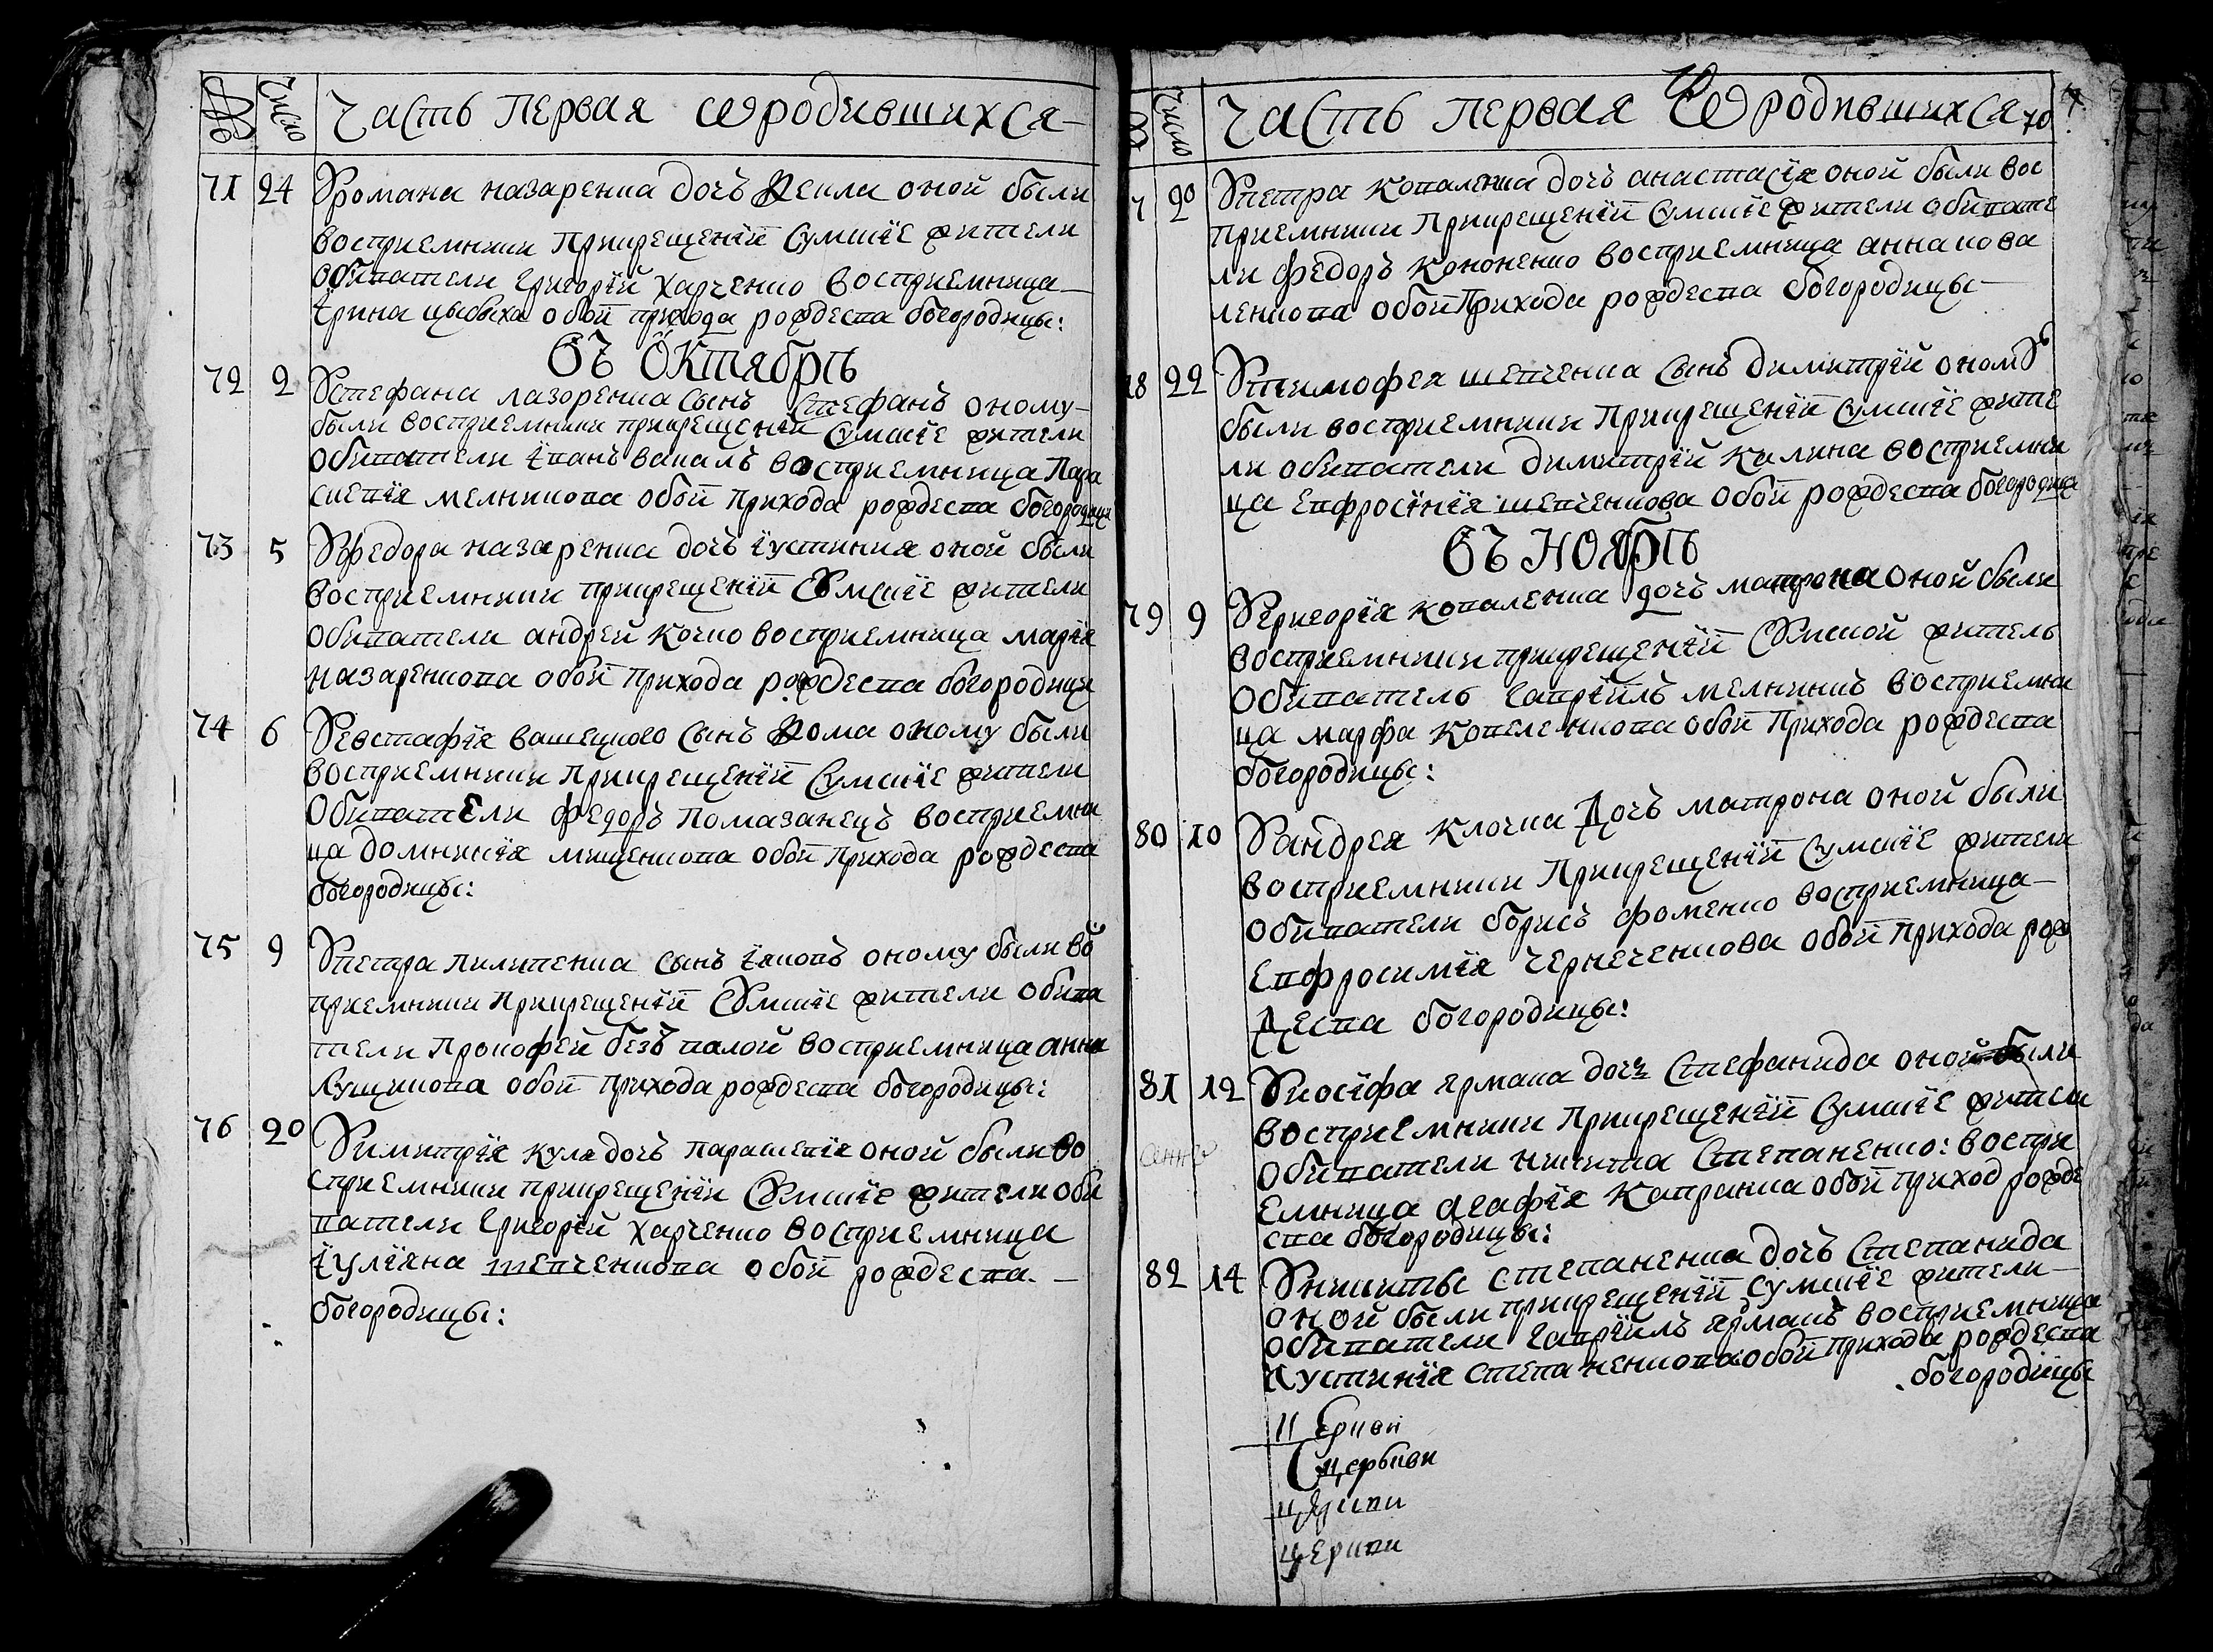 № Число Часть первая ѡ родившихся
71 24 У романа назаренка дочъ Фекла оной были
восприемники При крещенїй Сумскїе жители
обыватели Григорїй харченко восприемница
їрина цыбыха обой прихода рождества богородицы:
въ Октябрѣ
72 2 У стефана лазоренка сынъ Стефанъ оному
были восприемники прикрещенїй Сумскїе жители
обыватели їванъ вакалъ восприемница Пара
скевїя мелникова обой Прихода рождества богородицы
73 5 У федора назаренка дочъ їустиния оной были
восприемники прикрещенїй Сумскїе жители
обыватели андрей Кочко восприемница марїя
назаренкова обой Прихода рождества богородици
74 6 У евстафїя вашецкого Сынъ Фома оному были
восприемники Прикрещенїй Сумскїе жители
обыватели федоръ Помазанецъ восприемни
ца домникїя мищенкова обой Прихода рождества
богородицы:
75 9 У петра пилипенка сынъ їаковъ оному были вос
приемники Прикрещенїй Сумскїе жители обыва
тели Прокофей безъ палой восприемница анна
Сущикова обой Прихода рождества богородицы:
76 20 У димитрїя кула дочъ параскевїя оной были во
сприемники прикрещенїи Сумскїе жители обы
ватели Григорїй харченко восприемница
їулїяна шевченкова обой рождества
богородицы:
Число Часть первая Ѡ родившихся 70
7 20 У петра Коваленка дочъ анастасїя оной были вос
приемники Прикрещенїй Сумскїе жители обывате
ли федоръ Кононенко восприемница анна кова
ленкова обой Прихода рождества богородицы
78 22 У тимофея шевченка Сынъ димитрїй оному
были восприемники Прикрещенїй Сумскїе жите
ли обыватели димитрїй Калина восприемни
ца Евфросїнїя шевченкова обой рождества богородица
въ Ноябрѣ
79 9 У Григорїя коваленка дочъ матрона оной были
восприемники прикрещенїй Сумской житель
обыватель гаврїилъ мелникъ восприемни
ца марфа Ковеленкова обой Прихода рождества
богородицы:
80 10 У андрея Клочка Дочъ матрона оной были
восприемники Прикрещенїй Сумскїе жители
обыватели борисъ фоменко восприемница
Евфросимїя чернеченкова обой Прихода рож
Дества богородицы:
81 12 У иосїфа ярмака дочъ Стефанида оной были
восприемники Прикрещенїй Сумскїе жители
обыватели никита Степаненко: воспри
Емница агафїя Капранка обой приход рожде
ства богородицы:
82 14 У никиты степаненка дочъ Степанида
оной были прикрещенїй Сумскїе жители
обыватели гаврїилъ ярмакъ восприемница
їустинїя степаненкова обой прихода рождества
богородицы